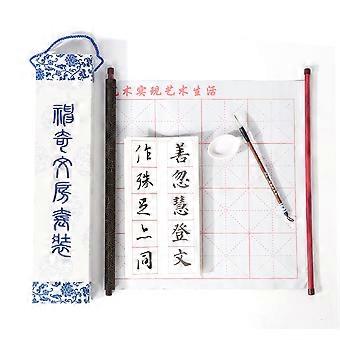 神奇文房套装
艺术实现艺术生活
善忽慧登文
作殊足点同